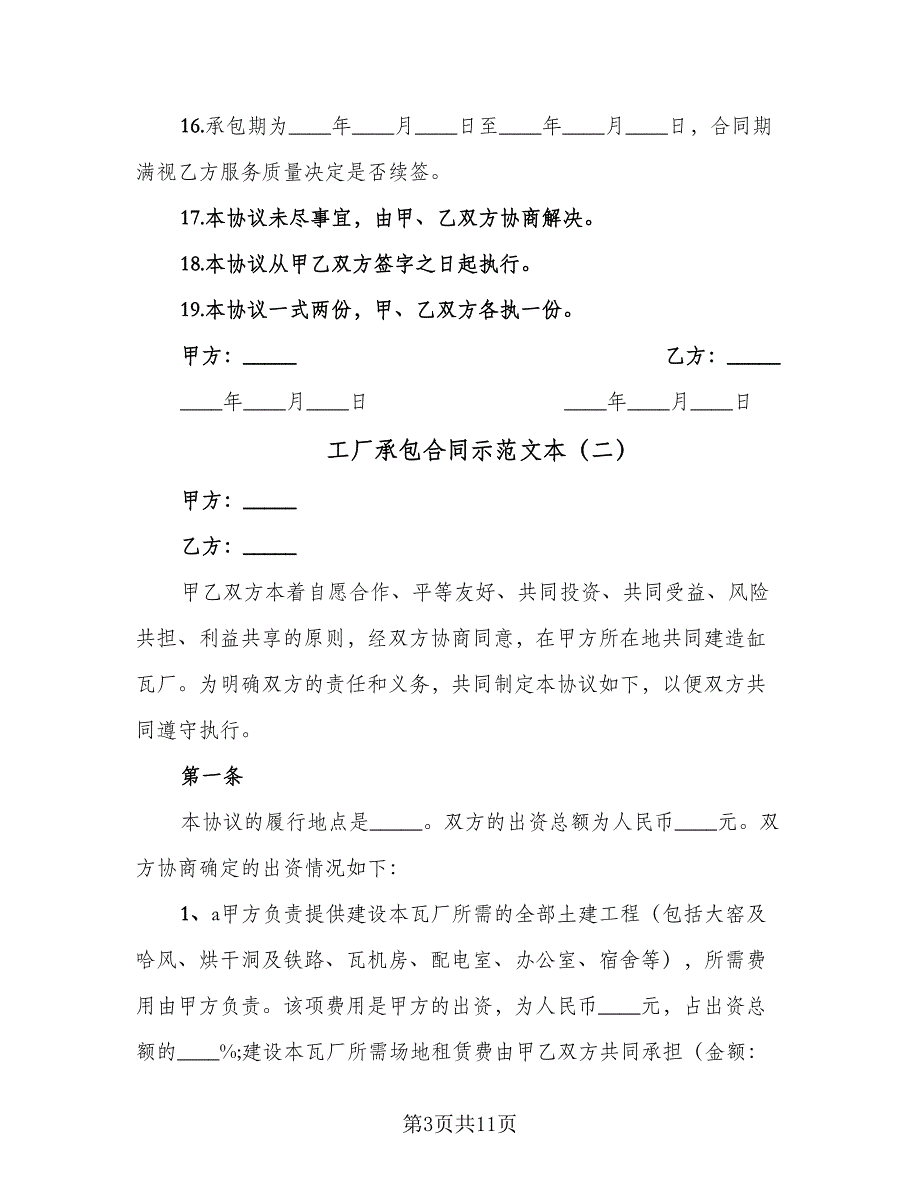 16.承包期为____年____月____日至____年____月____日，合同期
满视乙方服务质量决定是否续签。
17.本协议未尽事宜，由甲、乙双方协商解决。
18.本协议从甲乙双方签字之日起执行。
19.本协议一式两份，甲、乙双方各执一份。
甲方：_____ 乙方：_____
____年____月____日 ____年____月____日
工厂承包合同示范文本（二）
甲方：_____
乙方：_____
甲乙双方本着自愿合作、平等友好、共同投资、共同受益、风险
共担、利益共享的原则，经双方协商同意，在甲方所在地共同建造缸
瓦厂。为明确双方的责任和义务，共同制定本协议如下，以便双方共
同遵守执行。
第一条
本协议的履行地点是_____。双方的出资总额为人民币____元。双
方协商确定的出资情况如下：
1、a甲方负责提供建设本瓦厂所需的全部土建工程（包括大窑及
哈风、烘干洞及铁路、瓦机房、配电室、办公室、宿舍等），所需费
用由甲方负责。该项费用是甲方的出资，为人民币____元，占出资总
额的____%;建设本瓦厂所需场地租赁费由甲乙双方共同承担（金额：
第3页共11页